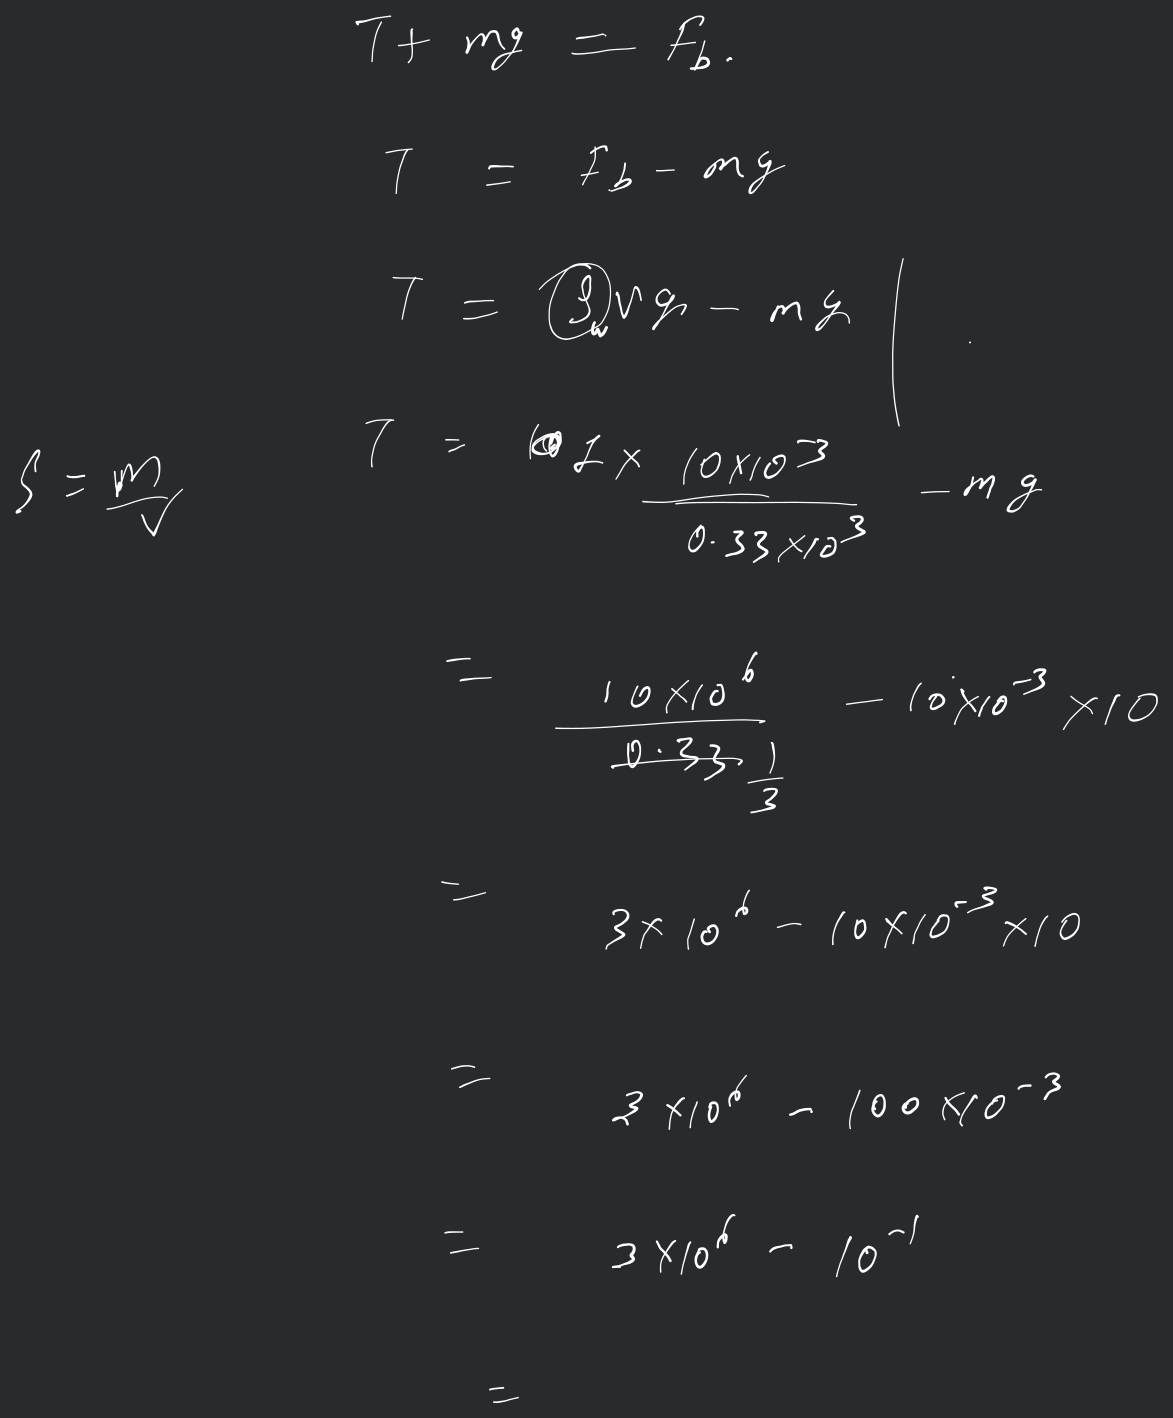 T + mg = Fb.
T = Fb - mg
T = ρw V g - mg
ρ = m/V
T = 1 × (10×10^-3)/(0.33×10^3) - mg
= (10×10^6)/(0.33 1/3) - 10×10^-3 × 10
= 3×10^6 - 10×10^-3 ×10
= 3×10^6 - 100×10^-3
= 3×10^6 - 10^-1
=